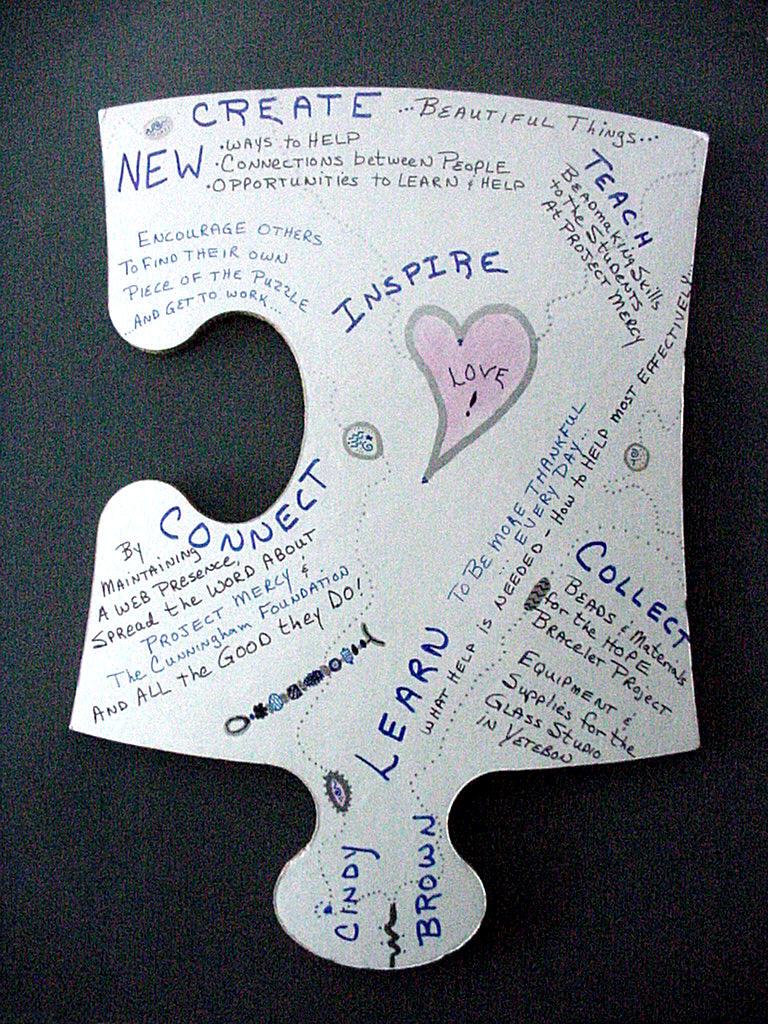 CREATE ...BEAUTIFUL Things...
NEW
·WAYS to HELP
·CONNECTIONS between PEOPLE
·OPPORTUNITIES to LEARN & HELP
ENCOURAGE OTHERS
To FIND THEIR OWN
PIECE OF THE PUZZLE
...AND GET TO WORK...
TEACH
BEADMAKING Skills
to the Students
At PROJECT MERCY
INSPIRE
LOVE
CONNECT
By
MAINTAINING
A WEB PRESENCE,
SPREAD the WORD ABOUT
PROJECT MERCY &
The CUNNINGHAM FOUNDATION
AND ALL the GOOD they DO!
LEARN
TO BE MORE THANKFUL
EVERY DAY...
WHAT HELP IS NEEDED - HOW to HELP MOST EFFECTIVELY...
COLLECT
BEADS & Materials
for the HOPE
BRACELET PROJECT
EQUIPMENT &
Supplies for the
GLASS STUDIO
IN YETEBON
CINDY
BROWN